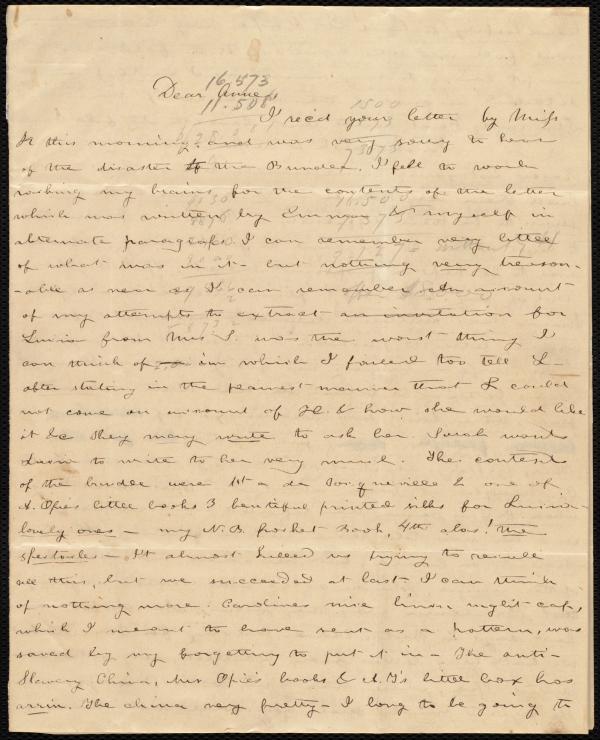 16.573
Dear Anne,
11.508
I rec'd your letter by Miss
this morning, and was very sorry to hear
of the disaster to the Bundle. I fell to work
racking my brains for the contents of the letter
which was written by Emma & myself in
alternate paragrafs. I can remember very little
of what was in it - but nothing very treason-
-able as near as I can remember. An account
of my attempts to extract an invitation for
Louisa from Mrs S. was the worst thing I
can think of - in which I failed too tell L-
after stating in the plainest manner that L could
not come on account of & how she would like
it &c they may write to ask her. Sarah wants
to write to her very much. The contents
of the bundle were 1st a de Tocqueville 2 one of
A. Opies little books 3 beautiful printed silks for Louisa
lovely ones - my N.B. pocket Book, 4th alas! the
spectacles - It almost killed us trying to recall
all this, but we succeeded at last - I can think
of nothing more. Carolines nice linen night cap,
which I meant to have sent as a pattern, was
saved by my forgetting to put it in - The anti-
Slavery China, Mrs Opie's books & A. T's little box has
arriv. The china very pretty - I long to be going to